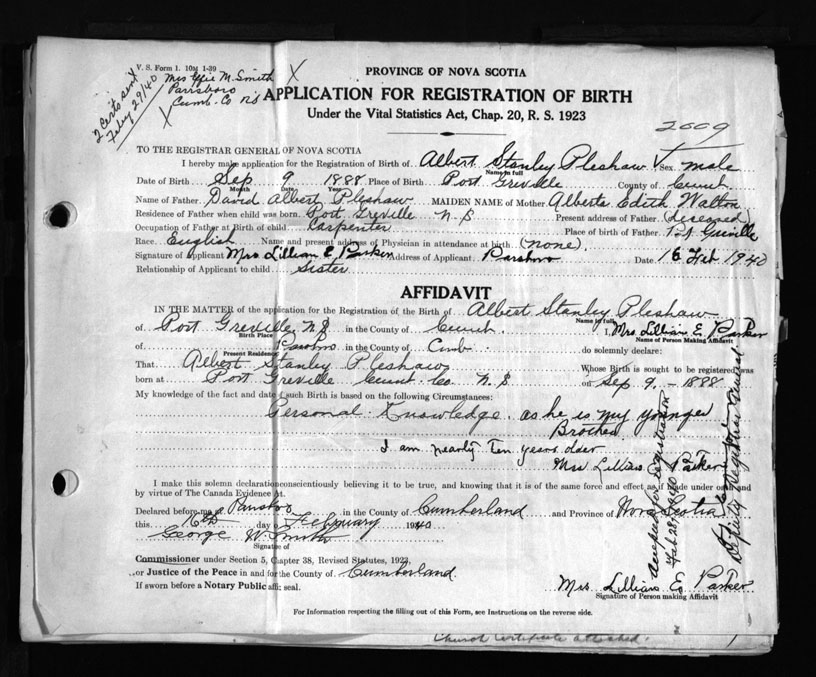 V. S. Form 1. 10M 1-39
2 Certs sent
Feby 29/40
Mrs Effie M. Smith X
Parrsboro
Cumb. Co NS
X
PROVINCE OF NOVA SCOTIA
APPLICATION FOR REGISTRATION OF BIRTH
Under the Vital Statistics Act, Chap. 20, R. S. 1923
2009
TO THE REGISTRAR GENERAL OF NOVA SCOTIA
I hereby make application for the Registration of Birth of Albert Stanley Pleshaw Sex male
Name in full
Date of Birth Sep 9 1888 Place of Birth Port Greville County of Cumb.
Month Date Year
Name of Father David Albert Pleshaw MAIDEN NAME of Mother Alberta Edith Walton
Residence of Father when child was born Port Greville N S Present address of Father (Deceased)
Occupation of Father at Birth of child Carpenter Place of birth of Father Pt Greville
Race English Name and present address of Physician in attendance at birth (none)
Signature of Applicant Mrs Lillian E. Parker Address of Applicant Parsboro Date 16 Feb 1940
Relationship of Applicant to child Sister
AFFIDAVIT
IN THE MATTER of the application for Registration of the Birth of Albert Stanley Pleshaw
Name in full
of Port Greville N.S in the County of Cumb. I, Mrs Lillian E. Parker
Birth Place Name of Person Making Affidavit
of Parsboro in the County of Cumb. do solemnly declare:
Present Residence
That Albert Stanley Pleshaw Whose Birth is sought to be registered was
born at Port Greville Cumb Co N S on Sep 9 - 1888
My knowledge of the fact and date of such Birth is based on the following Circumstances:
Personal Knowledge as he is my younger
Brother.
I am nearly Ten years older
Mrs Lillian E. Parker
I make this solemn declaration conscientiously believing it to be true, and knowing that it is of the same force and effect as if made under oath and
by virtue of The Canada Evidence Act.
Declared before me at Parsboro in the County of Cumberland and Province of Nova Scotia
this 16th day of February 1940
George W. Smith
Signature of
Commissioner under Section 5, Chapter 38, Revised Statutes, 1923,
or Justice of the Peace in and for the County of Cumberland.
If sworn before a Notary Public affix seal.
Mrs Lillian E. Parker
Signature of Person making Affidavit
Accepted for registration
Feb 29, 1940
Deputy Registrar General
For Information respecting the filling out of this Form, see Instructions on the reverse side.
Church Certificate attached.